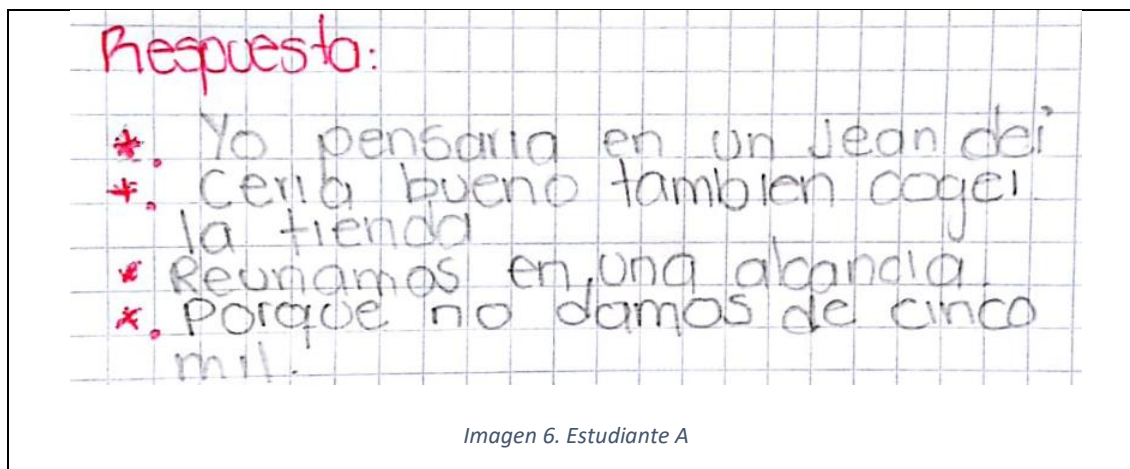 Respuesta:
*. Yo pensaria en un Jean dei
*. Ceria bueno tambien coger
la tienda
* Reunamos en una alcancia.
*. Porque no damos de cinco
mil.
Imagen 6. Estudiante A